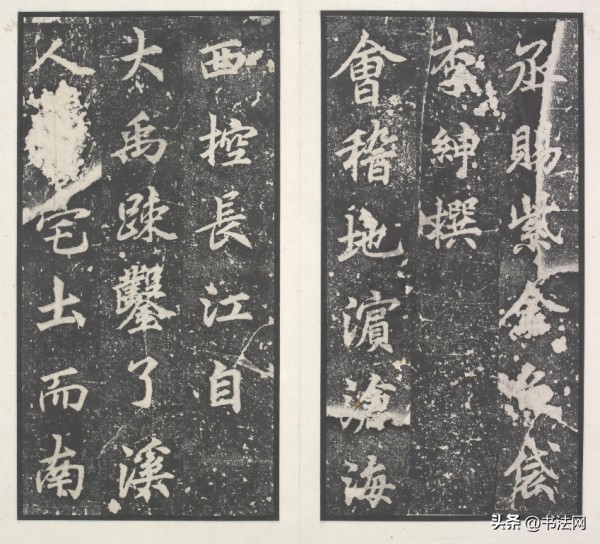 丞賜紫金魚袋
李紳撰
會稽地濵滄海
西控長江自
大禹疎鑿了溪
人宅土而南
头条 @书法网